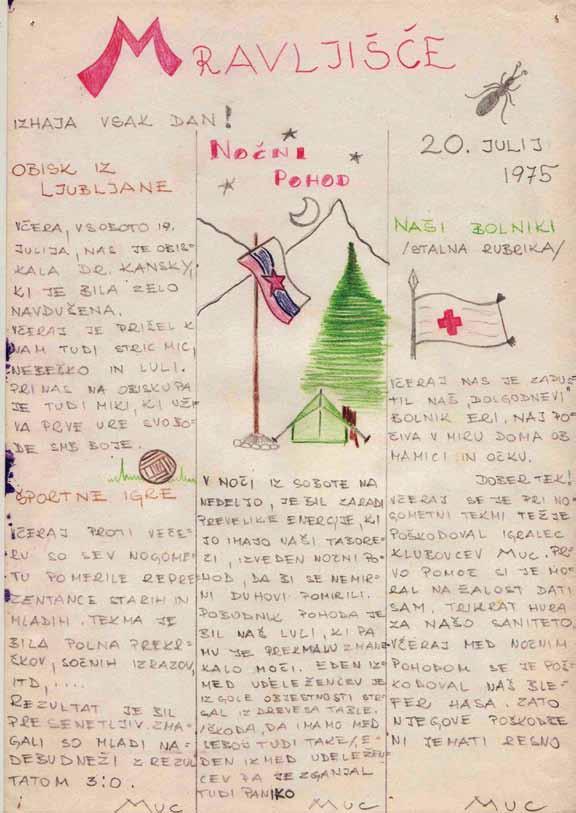 MRAVLJIŠČE
IZHAJA VSAK DAN!
20. JULIJ
1975
OBISK IZ
LJUBLJANE
VČERA, V SOBOTO 19.
JULIJA, NAS JE OBIS-
KALA DR. KANSKY,
KI JE BILA ZELO
NAVDUŠENA.
VČERAJ JE PRIŠEL K
NAM TUDI STRIC MIC,
NEBEŠKO IN LULI.
PRI NAS NA OBISKU PA
JE TUDI MIKI, KI UŽI-
VA PRVE URE SVOBO-
DE SMB BOJE.
ŠPORTNE IGRE
VČERAJ PROTI VEČE-
RU SO SE V NOGOME-
TU POMERILE REPRE-
ZENTANCE STARIH IN
MLADIH. TEKMA JE
BILA POLNA PREKR-
ŠKOV, SOČNIH IZRAZOV,
ITD,....
REZULTAT JE BIL
PRESENETLJIV. ZMA-
GALI SO MLADI NA-
DEBUDNEŽI Z REZUL
TATOM 3:0.
MUC
NOČNI
POHOD
V NOČI IZ SOBOTE NA
NEDELJO, JE BIL ZARADI
PREVELIKE ENERGIJE, KI
JO IMAJO NAŠI TABORE-
ČI, IZVEDEN NOČNI PO-
HOD, DA BI SE NEMIR-
NI DUHOVI POMIRILI.
POBUDNIK POHODA JE
BIL NAŠ LULI, KI PA
MU JE PREKMALU ZMANJ-
KALO MOČI. EDEN IZ-
MED UDELEŽENCEV JE
IZ GOLE OBJESTNOSTI STR-
GAL IZ DREVESA TABLE.
ŠKODA, DA IMAMO MED
SEBOJ TUDI TAKE/E-
DEN IZMED UDELEŽEN-
CEV PA JE ZGANJAL
TUDI PANIKO
MUC
NAŠI BOLNIKI
/STALNA RUBRIKA/
VČERAJ NAS JE ZAPUS-
TIL NAŠ „DOLGODNEVI"
BOLNIK ERI, NAJ PO-
ČIVA V MIRU DOMA OB
MAMICI IN OČKU.
DOBER TEK!
VČERAJ SE JE PRI NO-
GOMETNI TEKMI TEŽJE
POŠKODOVAL IGRALEC
KLUBOVCEV MUC. PR-
VO POMOČ SI JE MO-
RAL NA ŽALOST DATI
SAM. TRIKRAT HURA
ZA NAŠO SANITETO.
VČERAJ MED NOČNIM
POHODOM SE JE POŠ-
KODOVAL NAŠ BLE-
FER HASA. ZATO
NJEGOVE POŠKODBE
NI JEMATI RESNO
MUC